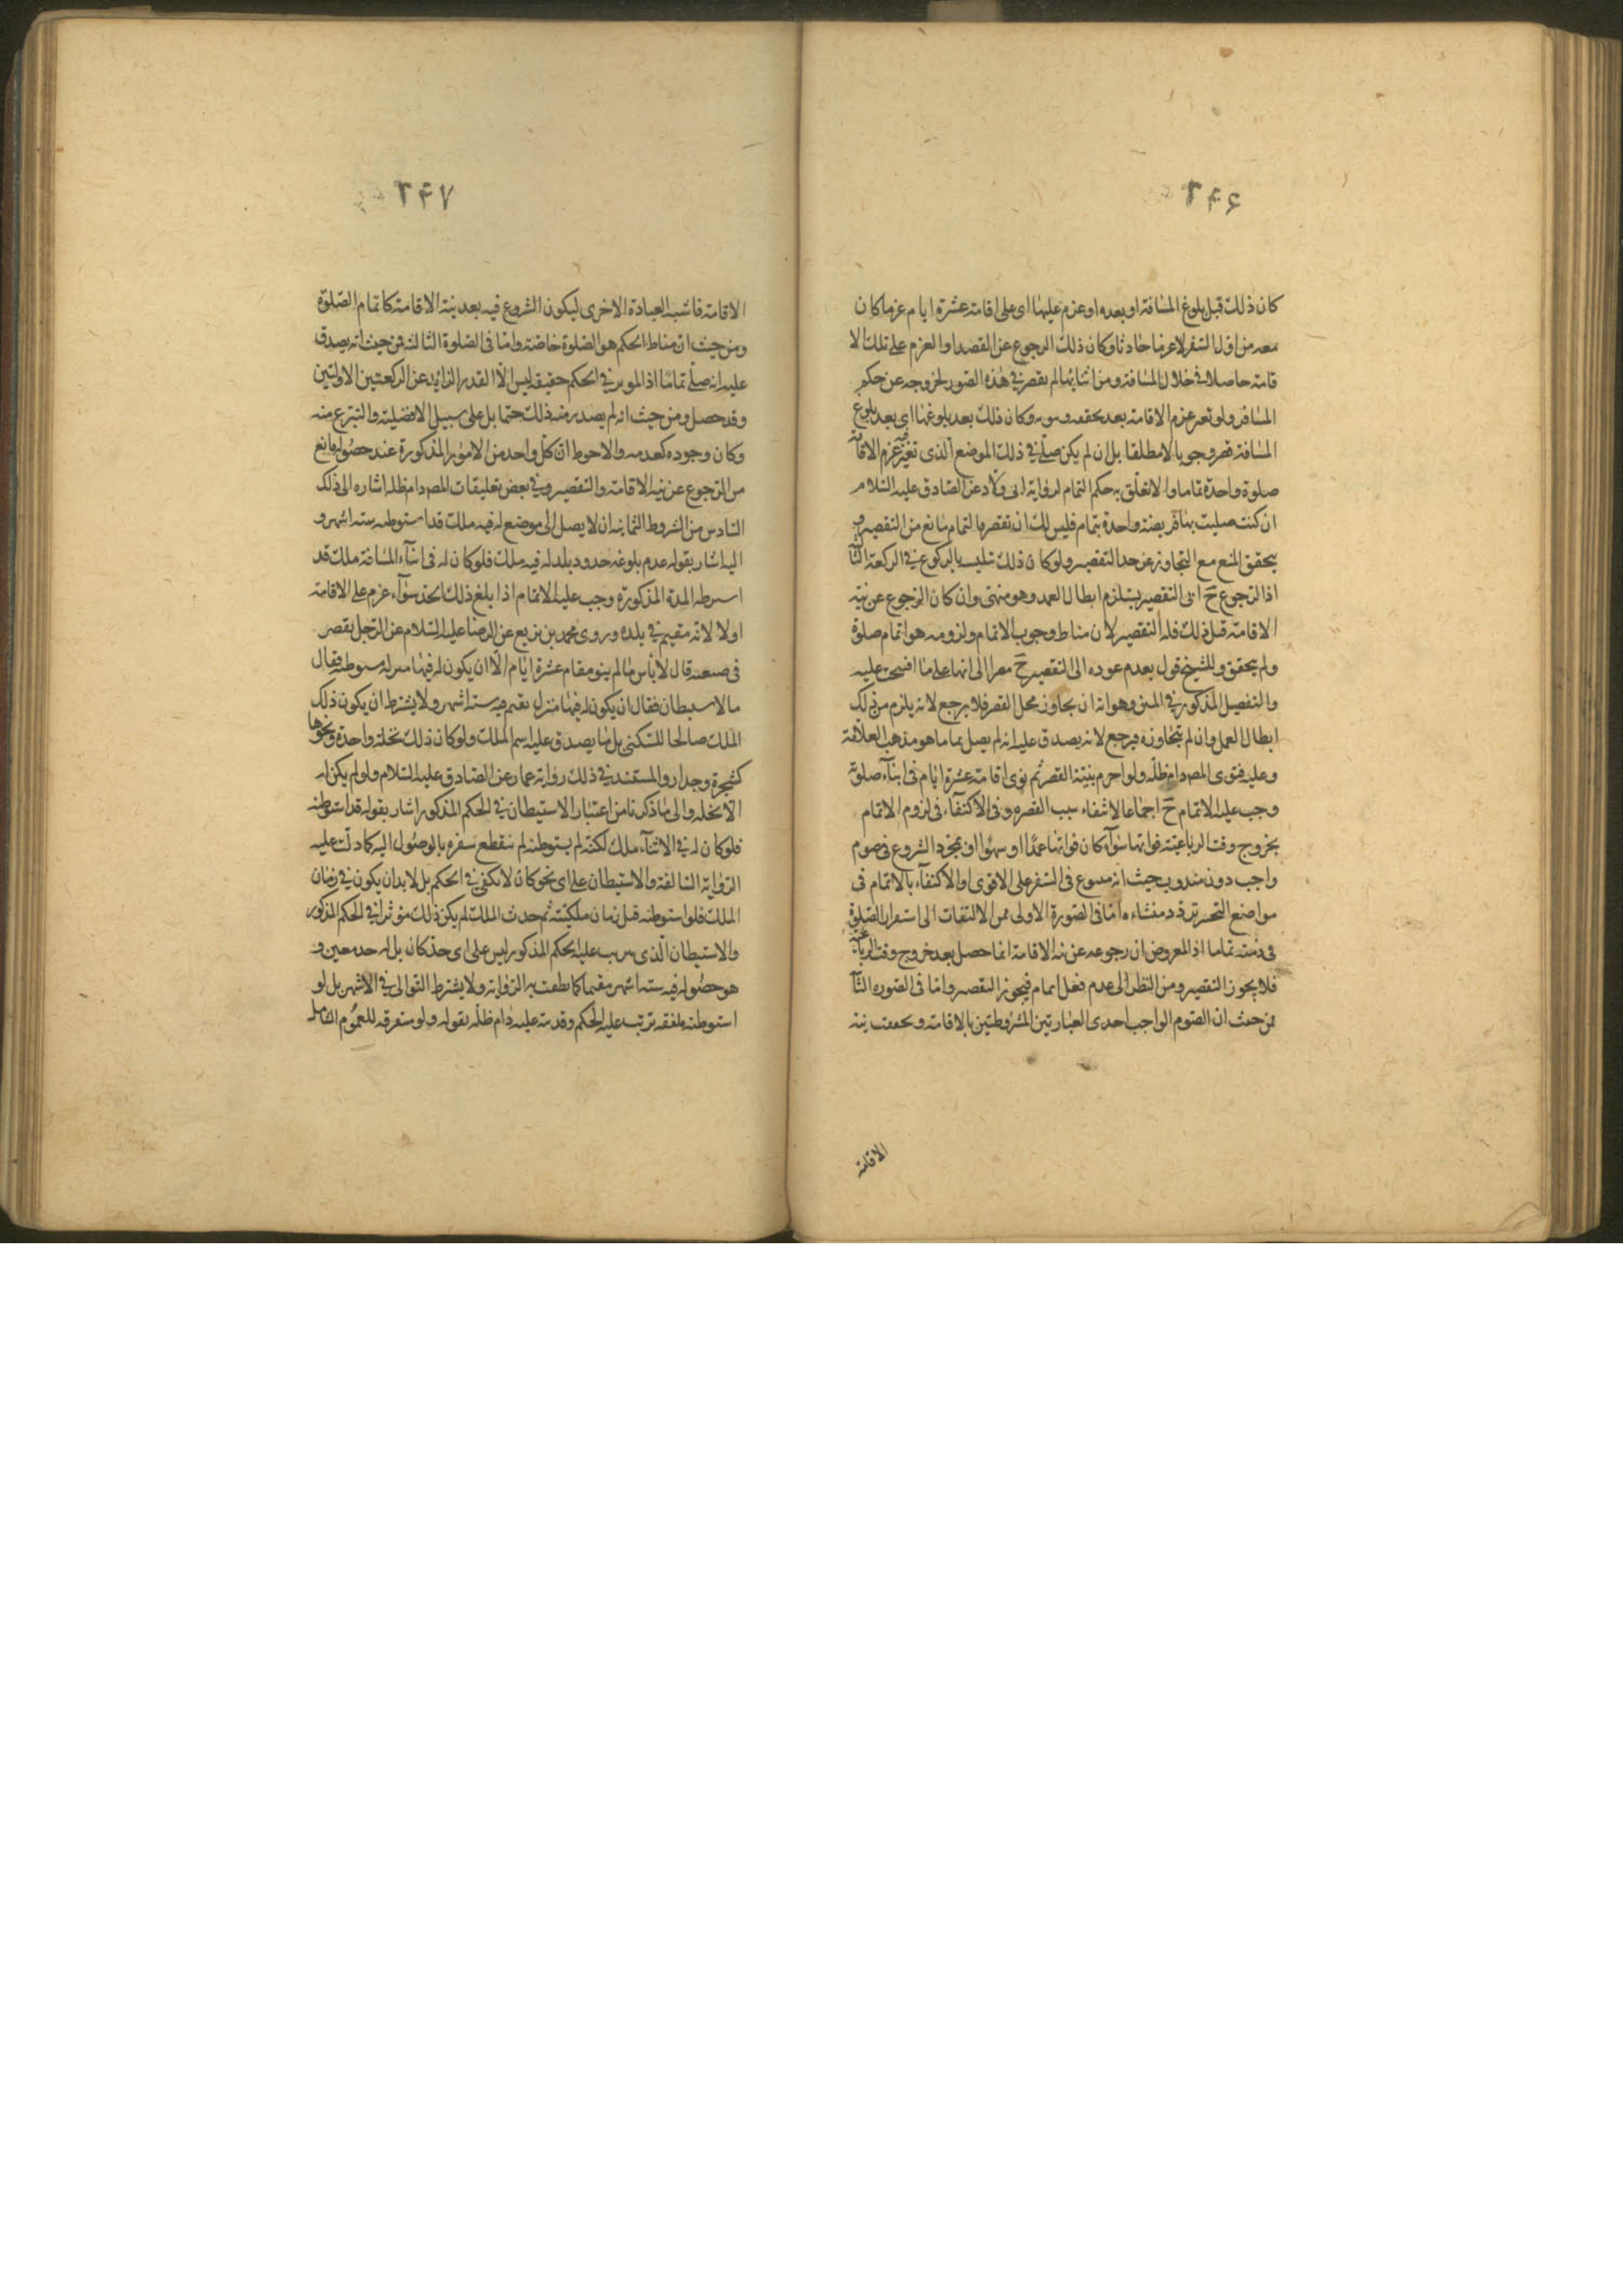 ۲۴۶
كان ذلك قبل بلوغ المسافة او بعده او عزم عليها اى على اقامة عشرة ايام عزما كان
معه من اول السفر لا عزما حادثا وكان ذلك الرجوع عن القصد او العزم على تلك الا
قامة حاصلا فى خلال المسافة ومن اثنائها لم يقصر فى هذه الصور لخروجه عن حكم
المسافر ولو تغير عزم الاقامة بعد تحققه وكان ذلك بعد بلوغها اى بعد بلوغ
المسافة قصر وجوبا لا مطلقا بل ان لم يكن صلى فى ذلك الموضع الذى تغير فيه عزم الاقامة
صلوة واحدة تماما والا تعلق به حكم التمام لرواية ابى ولاد عن الصادق عليه السلام
ان كنت صليت بها فريضة واحدة بتمام فليس لك ان تقصر فالتمام مانع من التقصير و
يتحقق المنع مع التجاوز عن حد التقصير ولو كان ذلك تلبسه بالركوع فى الركعة الثا
اذا الرجوع ح الى التقصير يستلزم ابطال العمد وهو منهى وان كان الرجوع عن نية
الاقامة قبل ذلك فله التقصير لان مناط وجوب الاتمام ولزومه هو اتمام صلوة
ولم يتحقق وللشيخ قول بعدم عوده الى التقصير ح الى انها على ما افتتحت عليه
والتفصيل المذكور فى المتن وهو انه ان تجاوز محل القصر فلا يرجع لانه يلزم من ذلك
ابطال العمل وان لم يتجاوزه فيرجع لانه يصدق عليه انه لم يصل تماما هو مذهب العلامة
وعليه فتوى المص دام ظله ولو احرم بنية القصر ثم نوى اقامة عشرة ايام فى اثناء صلوته
وجب عليه الاتمام ح اجماعا لانتفاء سبب القصر وفى الاكتفاء فى لزوم الاتمام
بخروج وقت الرباعية فواتها سواء كان فواتها عمدا او سهوا او بمجرد الشروع فى صوم
واجب دون مندوب حيث انه فى السفر على الاقوى او الاكتفاء بالاتمام فى
مواضع التخيير تردد منشاءه اما فى الصورة الاولى فمن الالتفات الى استقرار الصلوة
فى ذمته تماما اذ المفروض ان رجوعه عن نية الاقامة انما حصل بعد خروج وقت الرباعية
فلا يجوز التقصير ومن النظر الى عدم فعل تمام فيجوز التقصير واما فى الصورة الثا
فمن حيث ان الصوم الواجب احدى العبارتين المشروطتين بالاقامة وتحققت نية
الاقامة
۲۴۷
الاقامة فاشبه العبادة الاخرى ليكون الشروع فيه بعد نية الاقامة كاتمام الصلوة
ومن حيث ان مناط الحكم هو الصلوة خاصة واما فى الصلوة الثالثة فمن حيث انه يصدق
عليه انه صلى تماما اذ الموثر فى الحكم حقيقة ليس الا القدر الزايد عن الركعتين الاوليين
وقد حصل ومن حيث انه لم يصدر منه ذلك حتما بل على سبيل الافضلية والتبرع منه
وكان وجوده كعدمه والاحوط ان كل واحد من الامور المذكورة عند حصوله مانع
من الرجوع عن نية الاقامة والتقصير وفى بعض تعليقات المص دام ظله اشارة الى ذلك
السادس من الشروط الثمانية ان لا يصل الى موضع له فيه ملك قد استوطنه ستة اشهر و
اليه اشار بقوله عدم بلوغه حدود بلد له فيه ملك فلو كان له فى اثناء المسافة ملك قد
استوطنه المدة المذكورة وجب عليه الاتمام اذا بلغ ذلك الحد سواء عزم على الاقامة
اولا لانه مقيم فى بلده وروى محمد بن بزيع عن الرضا عليه السلام عن الرجل يقصر
فى ضيعته قال لا بأس ما لم ينو مقام عشرة ايام الا ان يكون له فيها منزل يستوطنه فقال
ما الاستيطان فقال ان يكون له فيها منزل يقيم فيه ستة اشهر ولا يشترط ان يكون ذلك
الملك صالحا للسكنى بل ما يصدق عليه اسم الملك ولو كان ذلك نخلة واحدة ونحوها
كشجرة وجدار والمستند فى ذلك رواية عمار عن الصادق عليه السلام ولو لم يكن له
الا نخلة والى ما ذكرنا من اعتبار الاستيطان فى الحكم المذكور اشار بقوله قد استوطنه
فلو كان له فى الاثناء ملك لكنه لم يستوطنه لم ينقطع سفره بالوصول اليه كما دلت عليه
الرواية السالفة والاستيطان على اى نحو كان لا يكفى فى الحكم بل لا بد ان يكون فى زمان
الملك فلو استوطنه قبل زمان ملكيته ثم حدث الملك لم يكن ذلك مؤثرا فى الحكم المذكور
والاستيطان الذى يترتب عليه الحكم المذكور ليس على اى حد كان بل له حد معين و
هو حصوله فيه ستة اشهر مقيما كما نطقت به الرواية ولا يشترط التوالى فى الاشهر بل لو
استوطنه ملفقة ترتب عليه الحكم وقد نبه عليه دام ظله بقوله ولو متفرقة للعموم الشامل